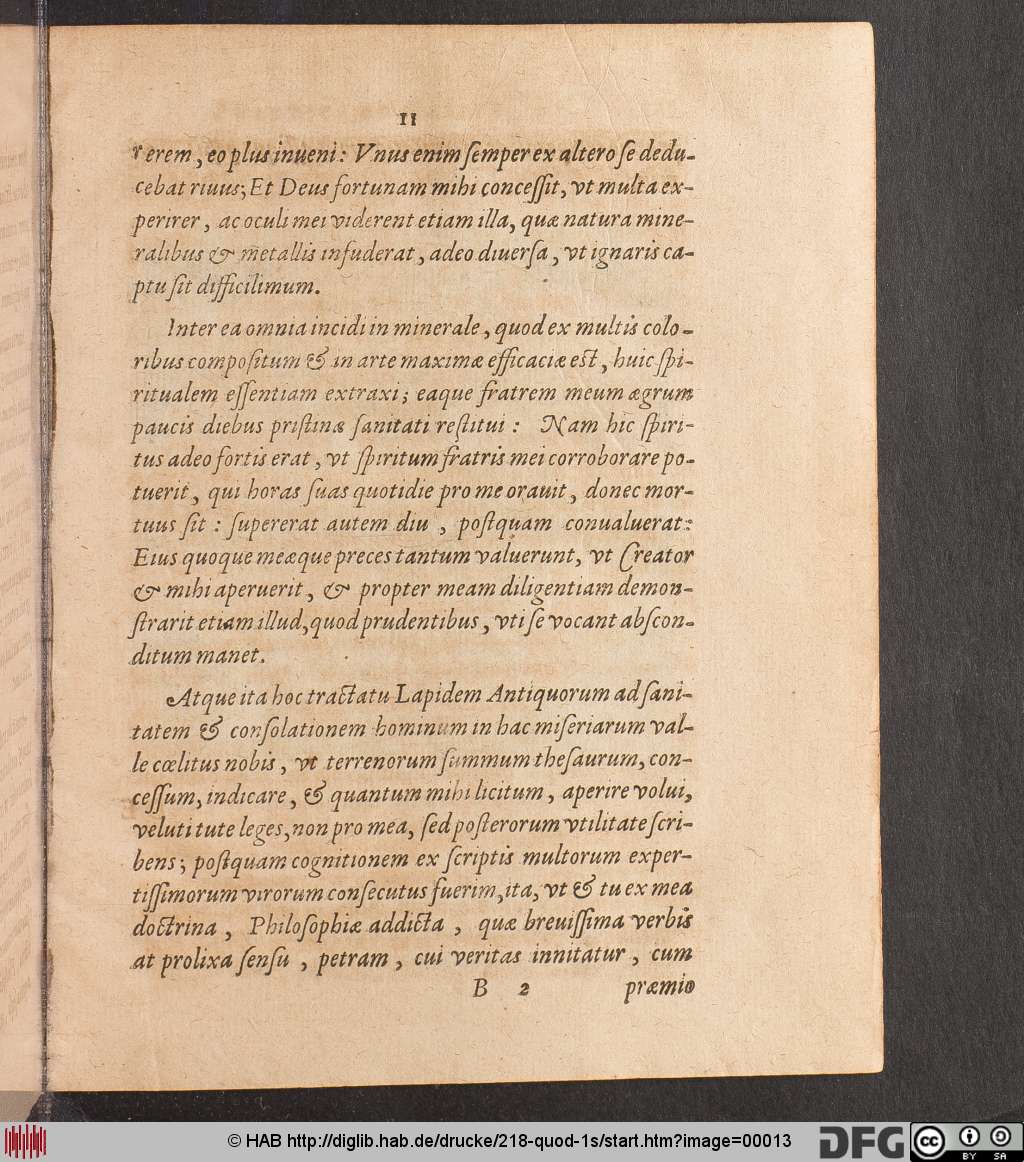 11
rerem, eo plus inueni: Vnus enim ſemper ex altero ſe dedu-
cebat riuus; Et Deus fortunam mihi conceſſit, vt multa ex-
perirer, ac oculi mei viderent etiam illa, quæ natura mine-
ralibus & metallis infuderat, adeo diuerſa, vt ignaris ca-
ptu ſit difficilimum.
Inter ea omnia incidi in minerale, quod ex multis colo-
ribus compoſitum & in arte maximæ efficaciæ eſt, huic ſpi-
ritualem eſſentiam extraxi; eaque fratrem meum ægrum
paucis diebus priſtinæ ſanitati reſtitui: Nam hic ſpiri-
tus adeo fortis erat, vt ſpiritum fratris mei corroborare po-
tuerit, qui horas ſuas quotidie pro me orauit, donec mor-
tuus ſit: ſupererat autem diu, poſtquam conualuerat:
Eius quoque meæque preces tantum valuerunt, vt Creator
& mihi aperuerit, & propter meam diligentiam demon-
ſtrarit etiam illud, quod prudentibus, vti ſe vocant abſcon-
ditum manet.
Atque ita hoc tractatu Lapidem Antiquorum ad ſani-
tatem & conſolationem hominum in hac miſeriarum val-
le cœlitus nobis, vt terrenorum ſummum theſaurum, con-
ceſſum, indicare, & quantum mihi licitum, aperire volui,
veluti tute leges, non pro mea, ſed poſterorum vtilitate ſcri-
bens; poſtquam cognitionem ex ſcriptis multorum exper-
tiſſimorum virorum conſecutus fuerim, ita, vt & tu ex mea
doctrina, Philoſophiæ addicta, quæ breuiſſima verbis
at prolixa ſenſu, petram, cui veritas innitatur, cum
B 2 præmio
© HAB http://diglib.hab.de/drucke/218-quod-1s/start.htm?image=00013
DFG
cc BY SA